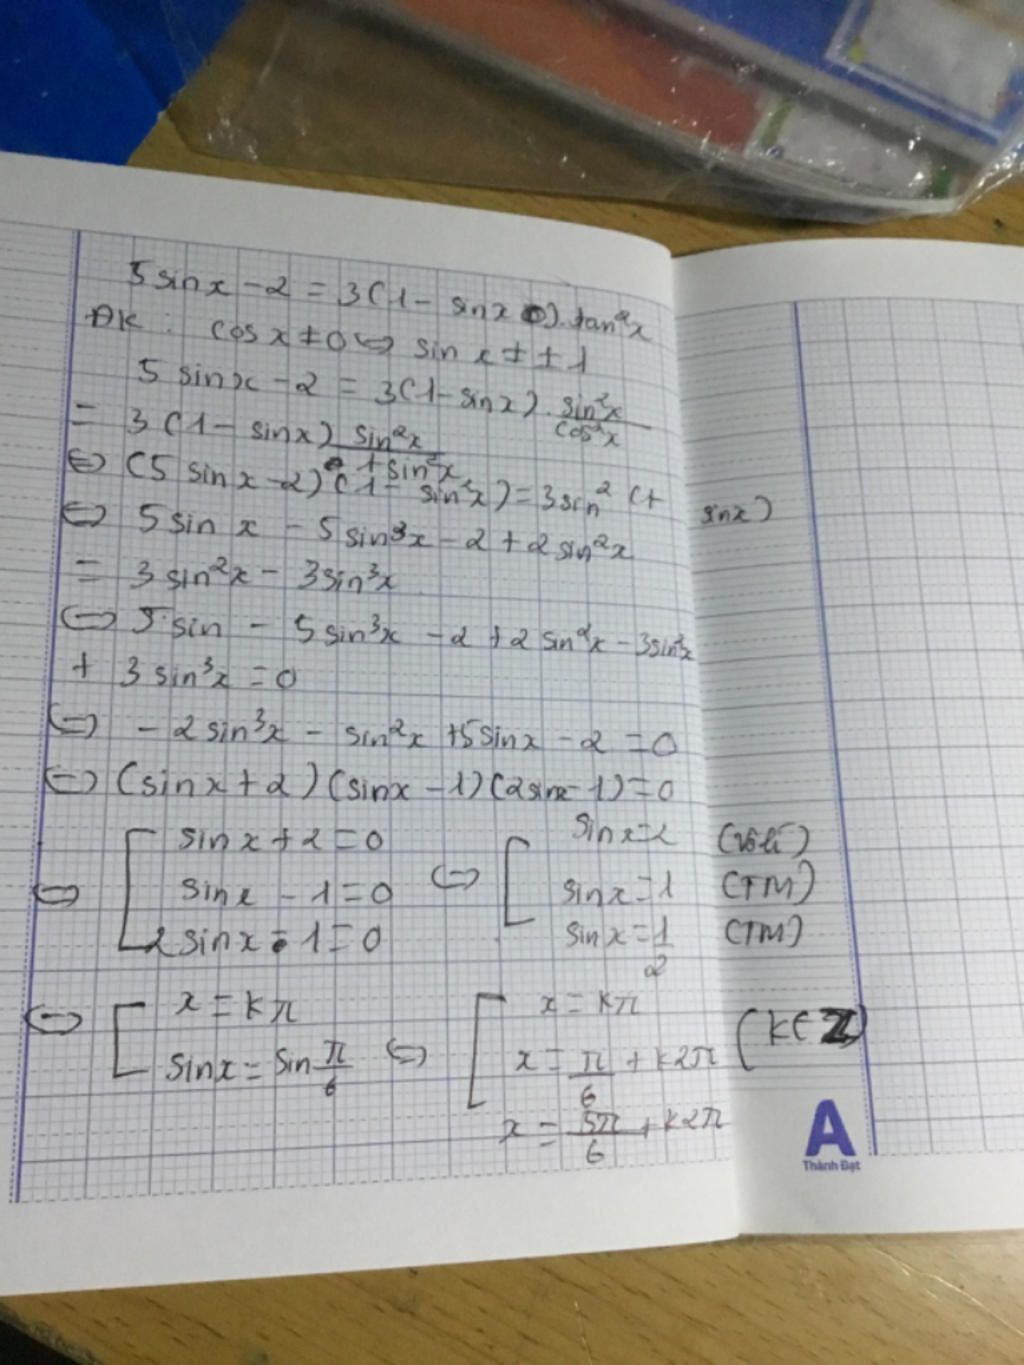 5 sin x - 2 = 3(1 - sin x). tan²x
ĐK : cos x ≠ 0 ⇔ sin x ≠ ± 1
5 sin x - 2 = 3(1 - sin x). sin²x / cos²x
= 3 (1 - sin x) sin²x / 1 - sin²x
⇔ (5 sin x - 2) (1 - sin²x) = 3 sin² (1 - sin x)
⇔ 5 sin x - 5 sin³x - 2 + 2 sin²x
= 3 sin²x - 3 sin³x
⇔ 5 sin - 5 sin³x - 2 + 2 sin²x - 3 sin²x
+ 3 sin³x = 0
⇔ - 2 sin³x - sin²x + 5 sin x - 2 = 0
⇔ (sin x + 2) (sin x - 1) (2 sin x - 1) = 0
⇔ [ sin x + 2 = 0 ⇔ [ sin x = 2 (vô lí)
sin x - 1 = 0 sin x = 1 (TM)
2 sin x - 1 = 0 sin x = 1/2 (TM)
⇔ [ x = kπ [ x = kπ
sin x = sin π/6 ⇔ x = π/6 + k2π (k ∈ Z)
x = 5π/6 + k2π
A
Thành Đạt